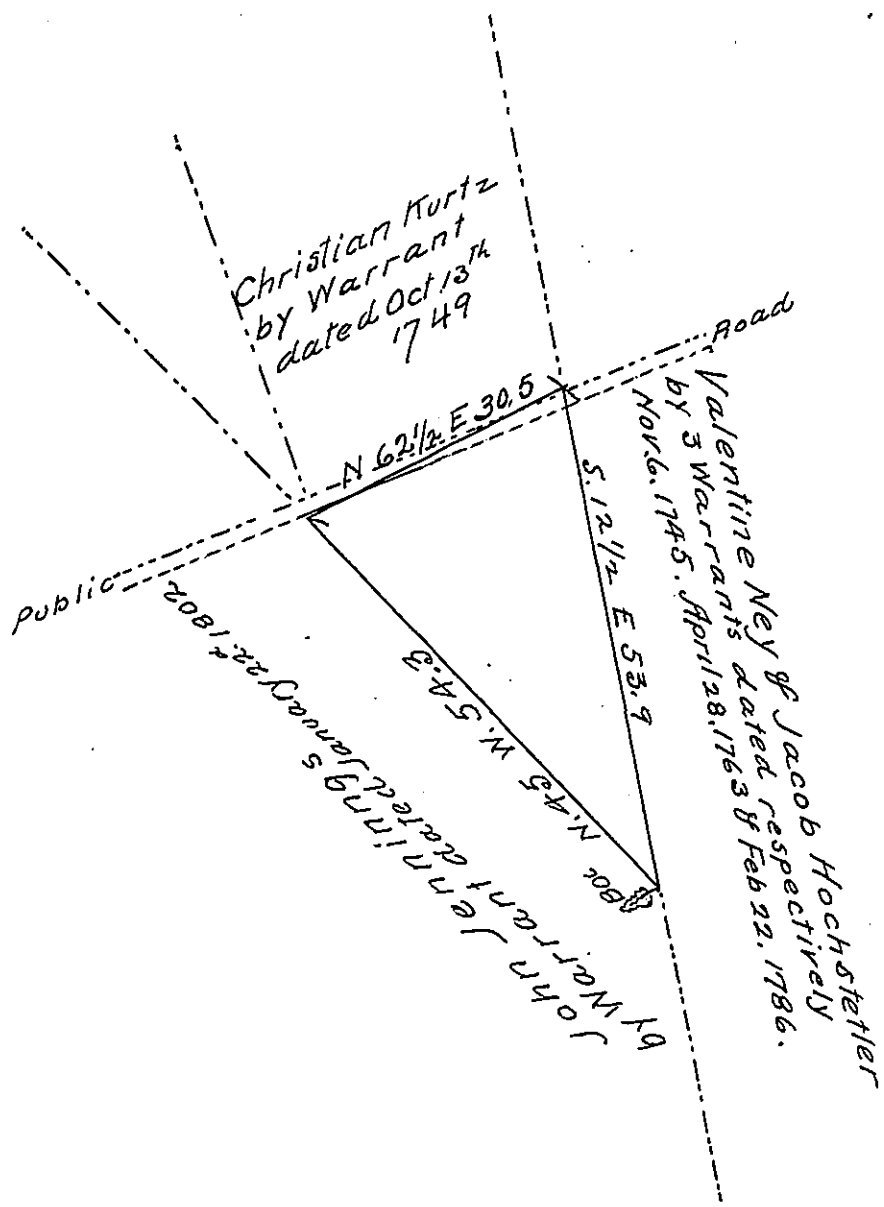 Christian Kurtz
by Warrant
dated Oct 13th
1749
Public
Road
N 62 1/2 E 30.5
S. 12 1/2 E 53.9
N. 45 W. 54.3
Valentine Ney & Jacob Hochstetler
by 3 Warrants dated respectively
Nov. 6. 1745. April 28. 1763 & Feb 22. 1786.
John Jennings
by Warrant dated January 22d. 1802